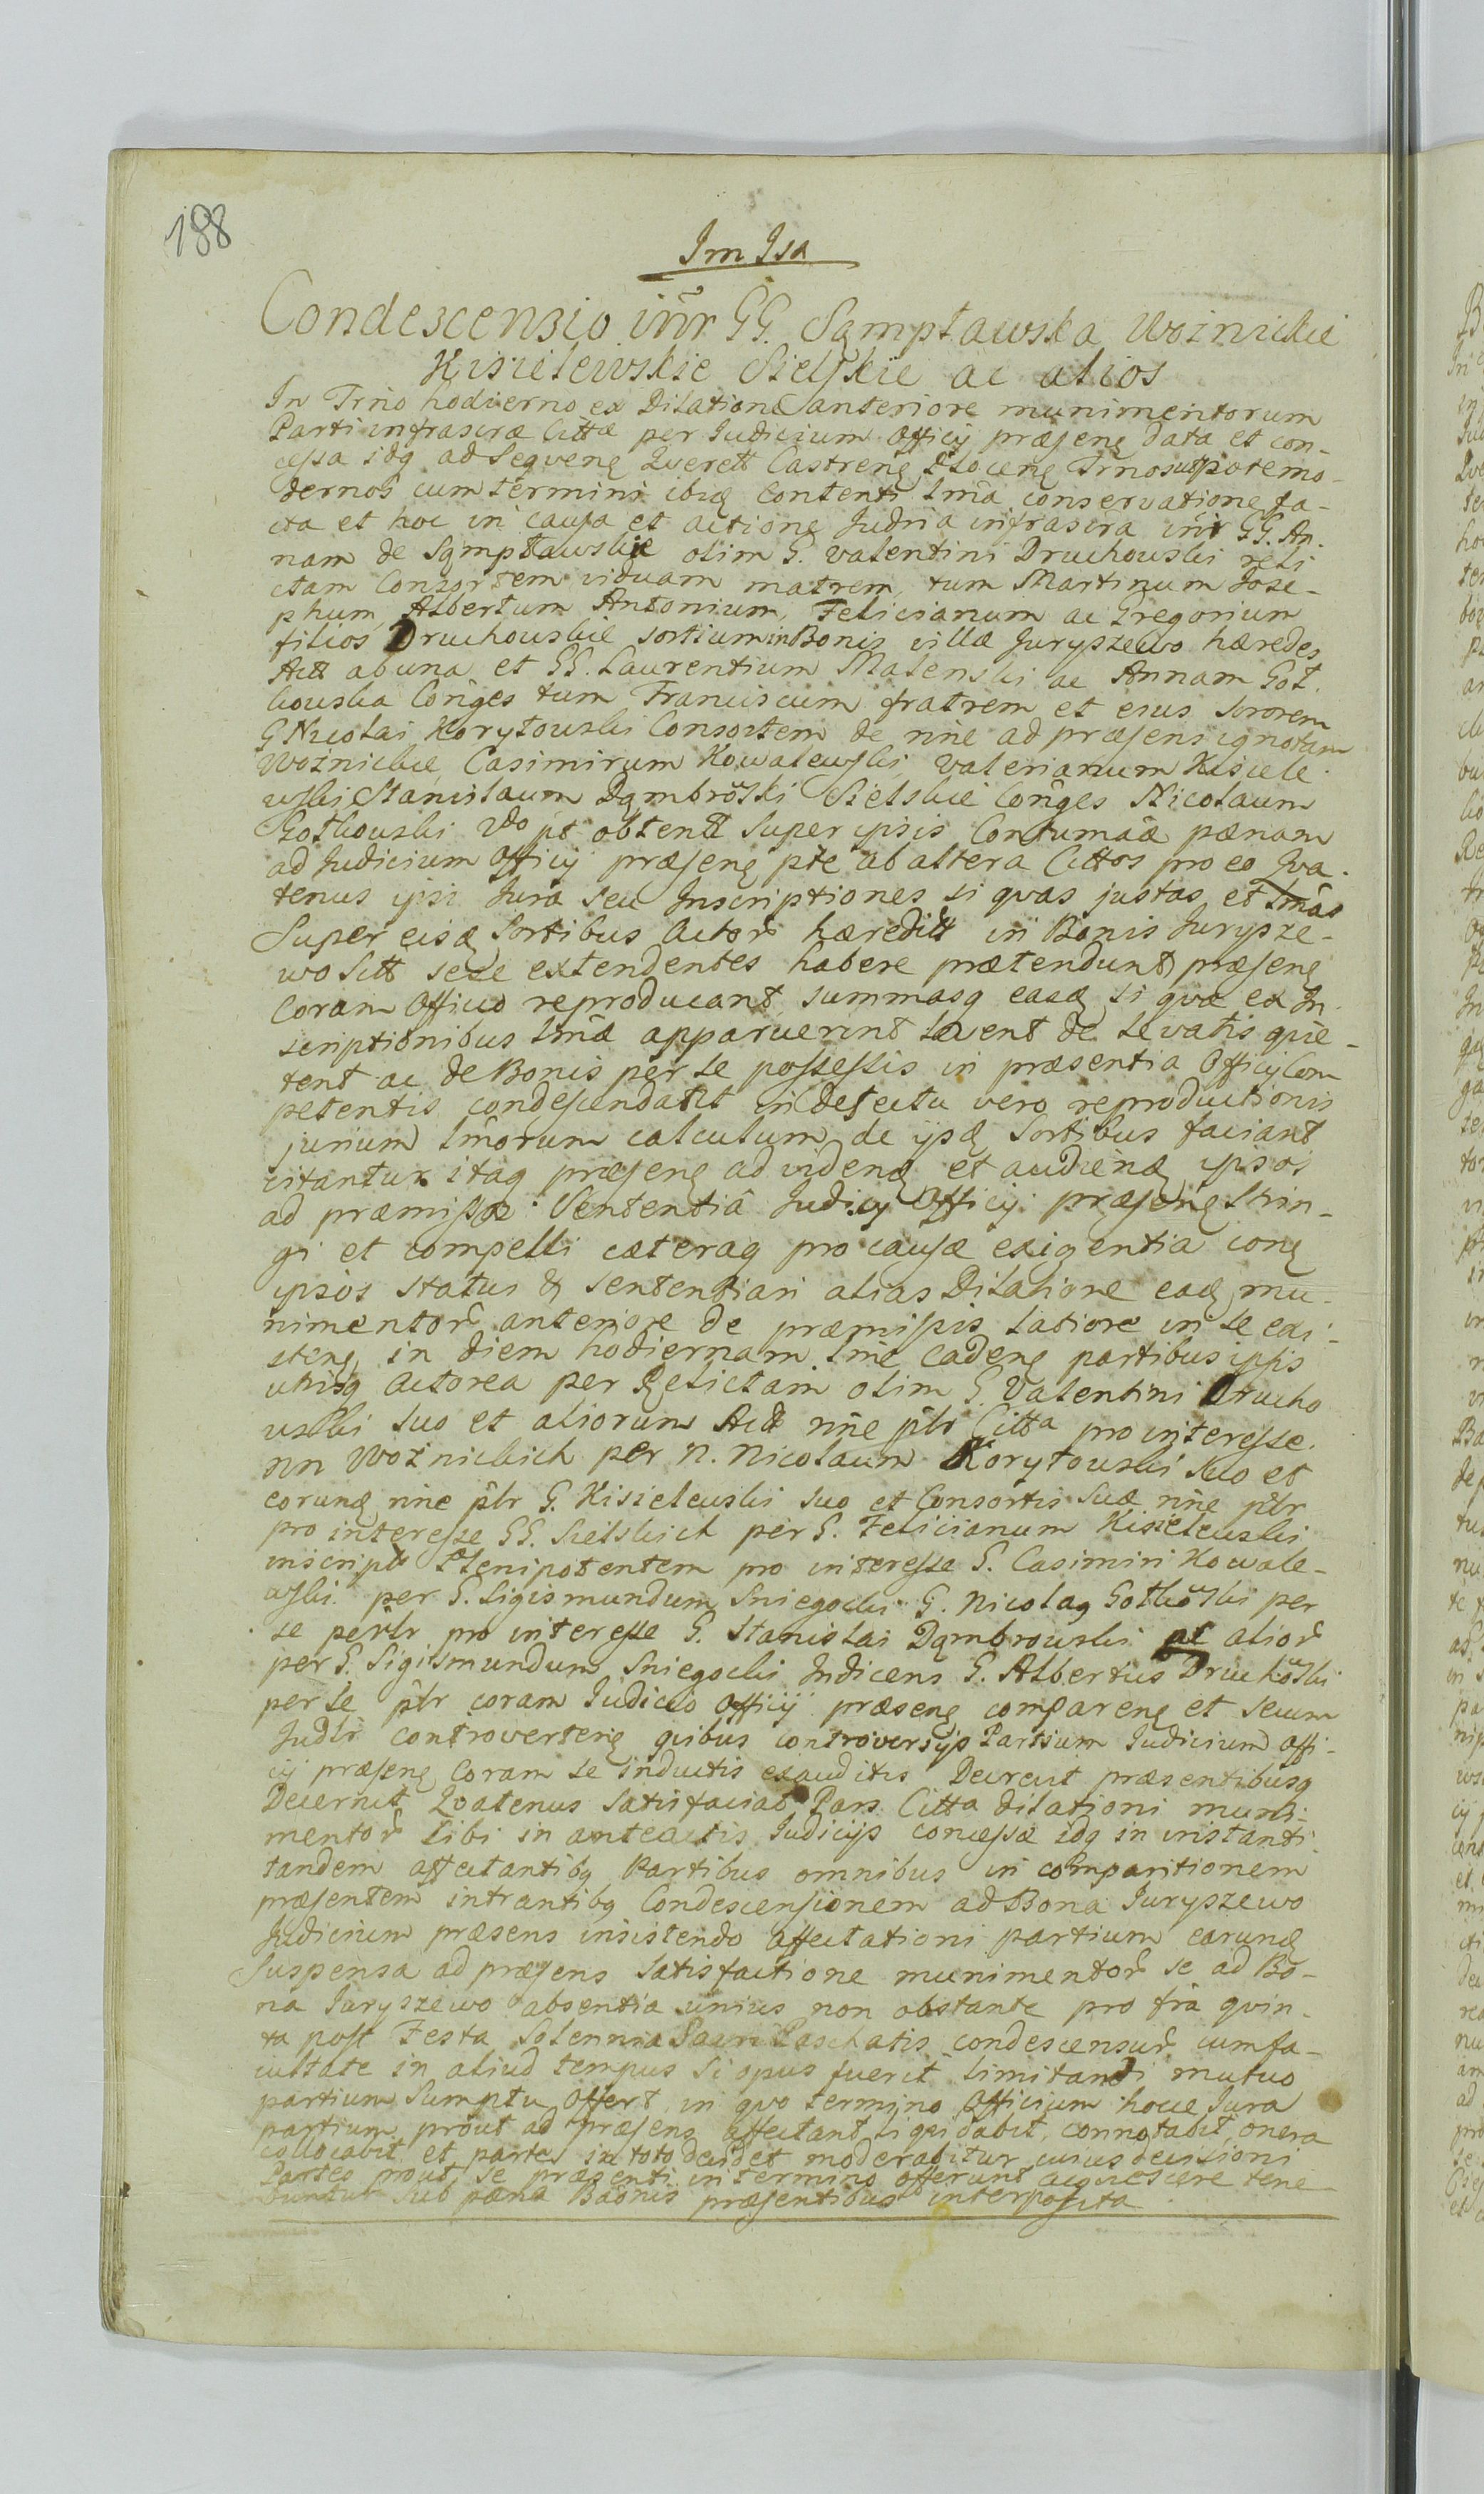 188
Im Isa
Condescensio inr GG. Sąmpławska Woźnickie
Kisielewskie Sielskie ac alios
In Trno hodierno ex Dilatione anteriore munimentorum
Parti infrascræ Cittæ per Judicium Officij præsenę data et con-
cessa idq ad Seqvenę Qverell Castrenę Plocenę Trnos utpote mo-
dernos cum termini ibiq Contenti lma conservatione fa-
cta et hoc in causa et actione Judria infrascra inr GG. An-
nam de Sąmpławskie olim G. Valentini Druchowski reli
ctam Consortem viduam matrem, tum Martinum Jose-
phum, Albertum Antonium, Felicianum ac Gregorium
filios Druchowskie sortium in Bonis villæ Juryszewo hæredes
Act ab una et GG. Laurentium Malenski ac Annam Got-
kowska Conges tum Franciscum fratrem et eius Sororem
G Nicolai Korytowski Consortem de nne ad præsens ignotam
Woźnickie, Casimirum Kowalewski, Valerianum Kisiele-
wski Stanislaum Dąmbrowski Sielskie Conges Nicolaum
Gotkowski Vdo pt obtent Super ipsis Contumaciæ pænam
ad Judicium Officij præsenę pte ab altera Cittos pro eo Qva-
tenus ipsi Jura seu Inscriptiones si qvas justas et lmas
Super eisq Sortibus Actor hæredit in Bonis Jurysze-
wo Sitt sese extendentes habere prætendunt præsenę
Coram Officio reproducant, summasq easq si qvæ ex In-
scriptionibus lmæ apparuerint levent de levatis qvie-
tent ac de Bonis per se possessis in præsentia Officij Com
petentis condescendant in defectu vero reproductionis
jurium lmorum calculum de ipsq Sortibus faciant
citantur itaq præsenę ad videnq et audienq ipsos
ad præmissa Sententiâ Judicij Officij præsenę Strin-
gi et compelli cæteraq pro causæ exigentia conę
ipsos statui & sententiari alias Dilatione eaq mu-
nimentor anteriore de præmissis latiore in se exi-
stenę in diem hodiernam lme cadenę partibus ipsis
utrisq Actorea per Relictam olim G. Valentini Drucho
wski suo et aliorum Act nne pltr Citta pro interesse
nn Woźnickich per N. Nicolaum Korytowski suo et
eorunq nne pltr G. Kisielewski suo et Consortis Suæ nne pltr
pro interesse GG. Sielskich per G. Felicianum Kisielewski
inscript Plenipotentem pro interesse G. Casimiri Kowale-
wski per G. Sigismundum Sniegocki G. Nicolaq Gotkowski per
se pertr pro interesse G. Stanislai Dąmbrowski ac alior
per G. Sigismundum Sniegocki Indicens G. Albertus Druchowski
per se pltr coram Judicio Officij præsenę comparenę et secum
Judtr controvertenę qvibus controversijs Partium Judicium Offi-
cij præsenę Coram se inductis exauditis Decrevit præsentibusq
Decernit Qvatenus Satisfaciat Pars Citta dilationi muni-
mentor Sibi in anteactis Judicijs concessæ idq in instanti
tandem affectantibq Partibus omnibus in comparitionem
præsentem intrantibq Condescensionem ad Bona Juryszewo
Judicium præsens insistendo affectationi partium earunq
Suspensa ad præsens satisfactione munimentor se ad Bo-
na Juryszewo absentia unius non obstante pro fria qvin-
ta post Festa Solennia Sacri Paschatis condescensur cum fa-
cultate in aliud tempus si opus fuerit limitandi mutuo
partium Sumptu Offert in qvo termino Officium hocce Jura
partium prout ad præsens affectant liqvidabit, connotabit, onera
collocabit et partes in toto decidet moderabitur cuius decisioni
Partes prout se præsenti in termino offerunt acqviescere tene
buntur sub pæna Baonis præsentibus interposita